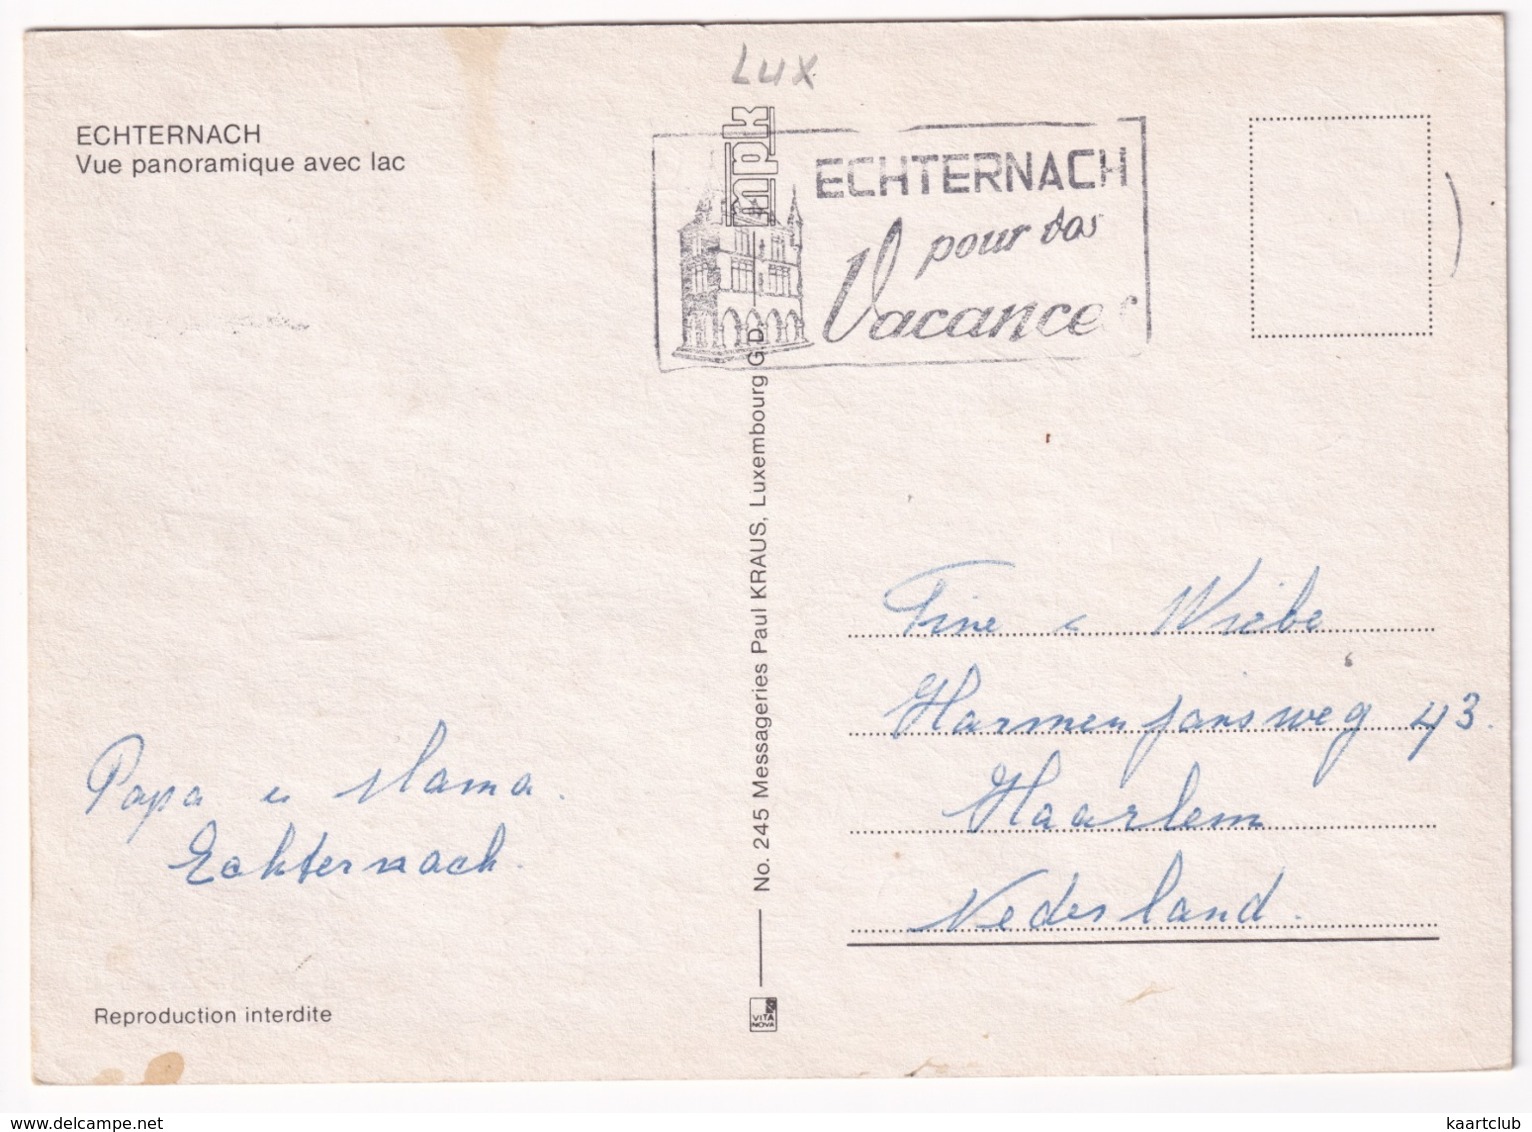 LUX
ECHTERNACH
Vue panoramique avec lac
mpk
ECHTERNACH
pour vos
Vacances
No. 245 Messageries Paul KRAUS, Luxembourg G.D.
Tine e Wiebe
Harmenjansweg 43.
Haarlem
Nederland.
Papa en Mama.
Echternach.
Reproduction interdite
VITA
NOVA
www.delcampe.net
kaartclub